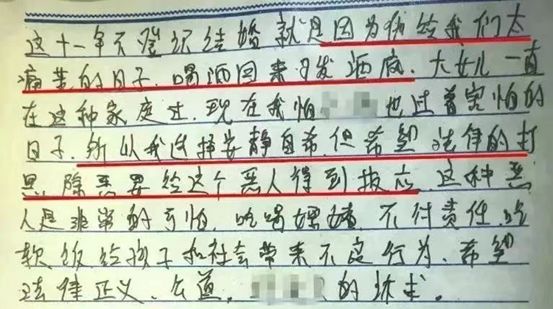 这十一年不登记结婚就是因为他给我们太
痛苦的日子.喝酒回来又发酒疯.大女儿一直
在这种家庭过.现在我怕 也过着害怕的
日子.所以我选择安静自希.但希望法律的打
黑.除恶要给这个恶人得到报应.这种恶
人是非常的可怕.吃喝嫖赌不付责任.吃
软饭给孩子和社会带来不良行为.希望
法律正义、公道. 的 求.